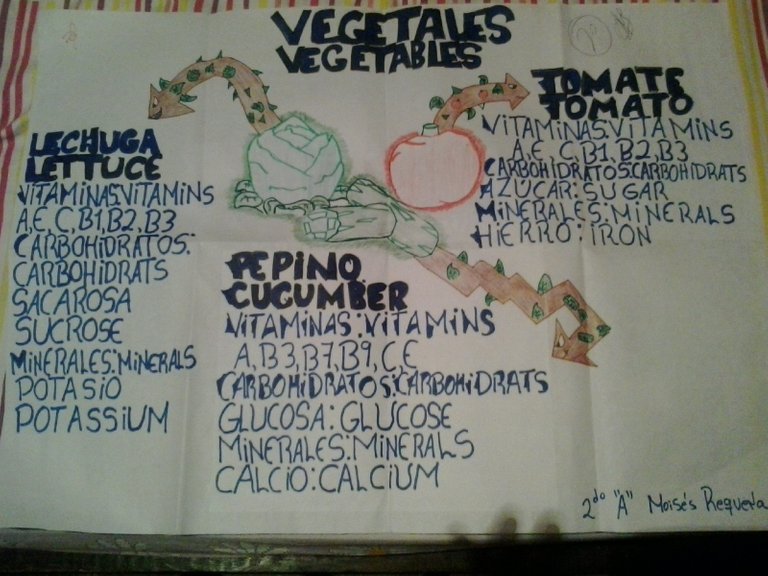 VEGETALES
VEGETABLES
LECHUGA
LETTUCE
VITAMINAS:VITAMINS
A,E,C,B1,B2,B3
CARBOHIDRATOS:
CARBOHIDRATS
SACAROSA
SUCROSE
MINERALES:MINERALS
POTASIO
POTASSIUM
PEPINO
CUCUMBER
VITAMINAS:VITAMINS
A,B3,B7,B9,C,E
CARBOHIDRATOS:CARBOHIDRATS
GLUCOSA:GLUCOSE
MINERALES:MINERALS
CALCIO:CALCIUM
TOMATE
TOMATO
VITAMINAS:VITAMINS
A,E,C,B1,B2,B3
CARBOHIDRATOS:CARBOHIDRATS
AZUCAR:SUGAR
MINERALES:MINERALS
HIERRO:IRON
2do "A" Moisés